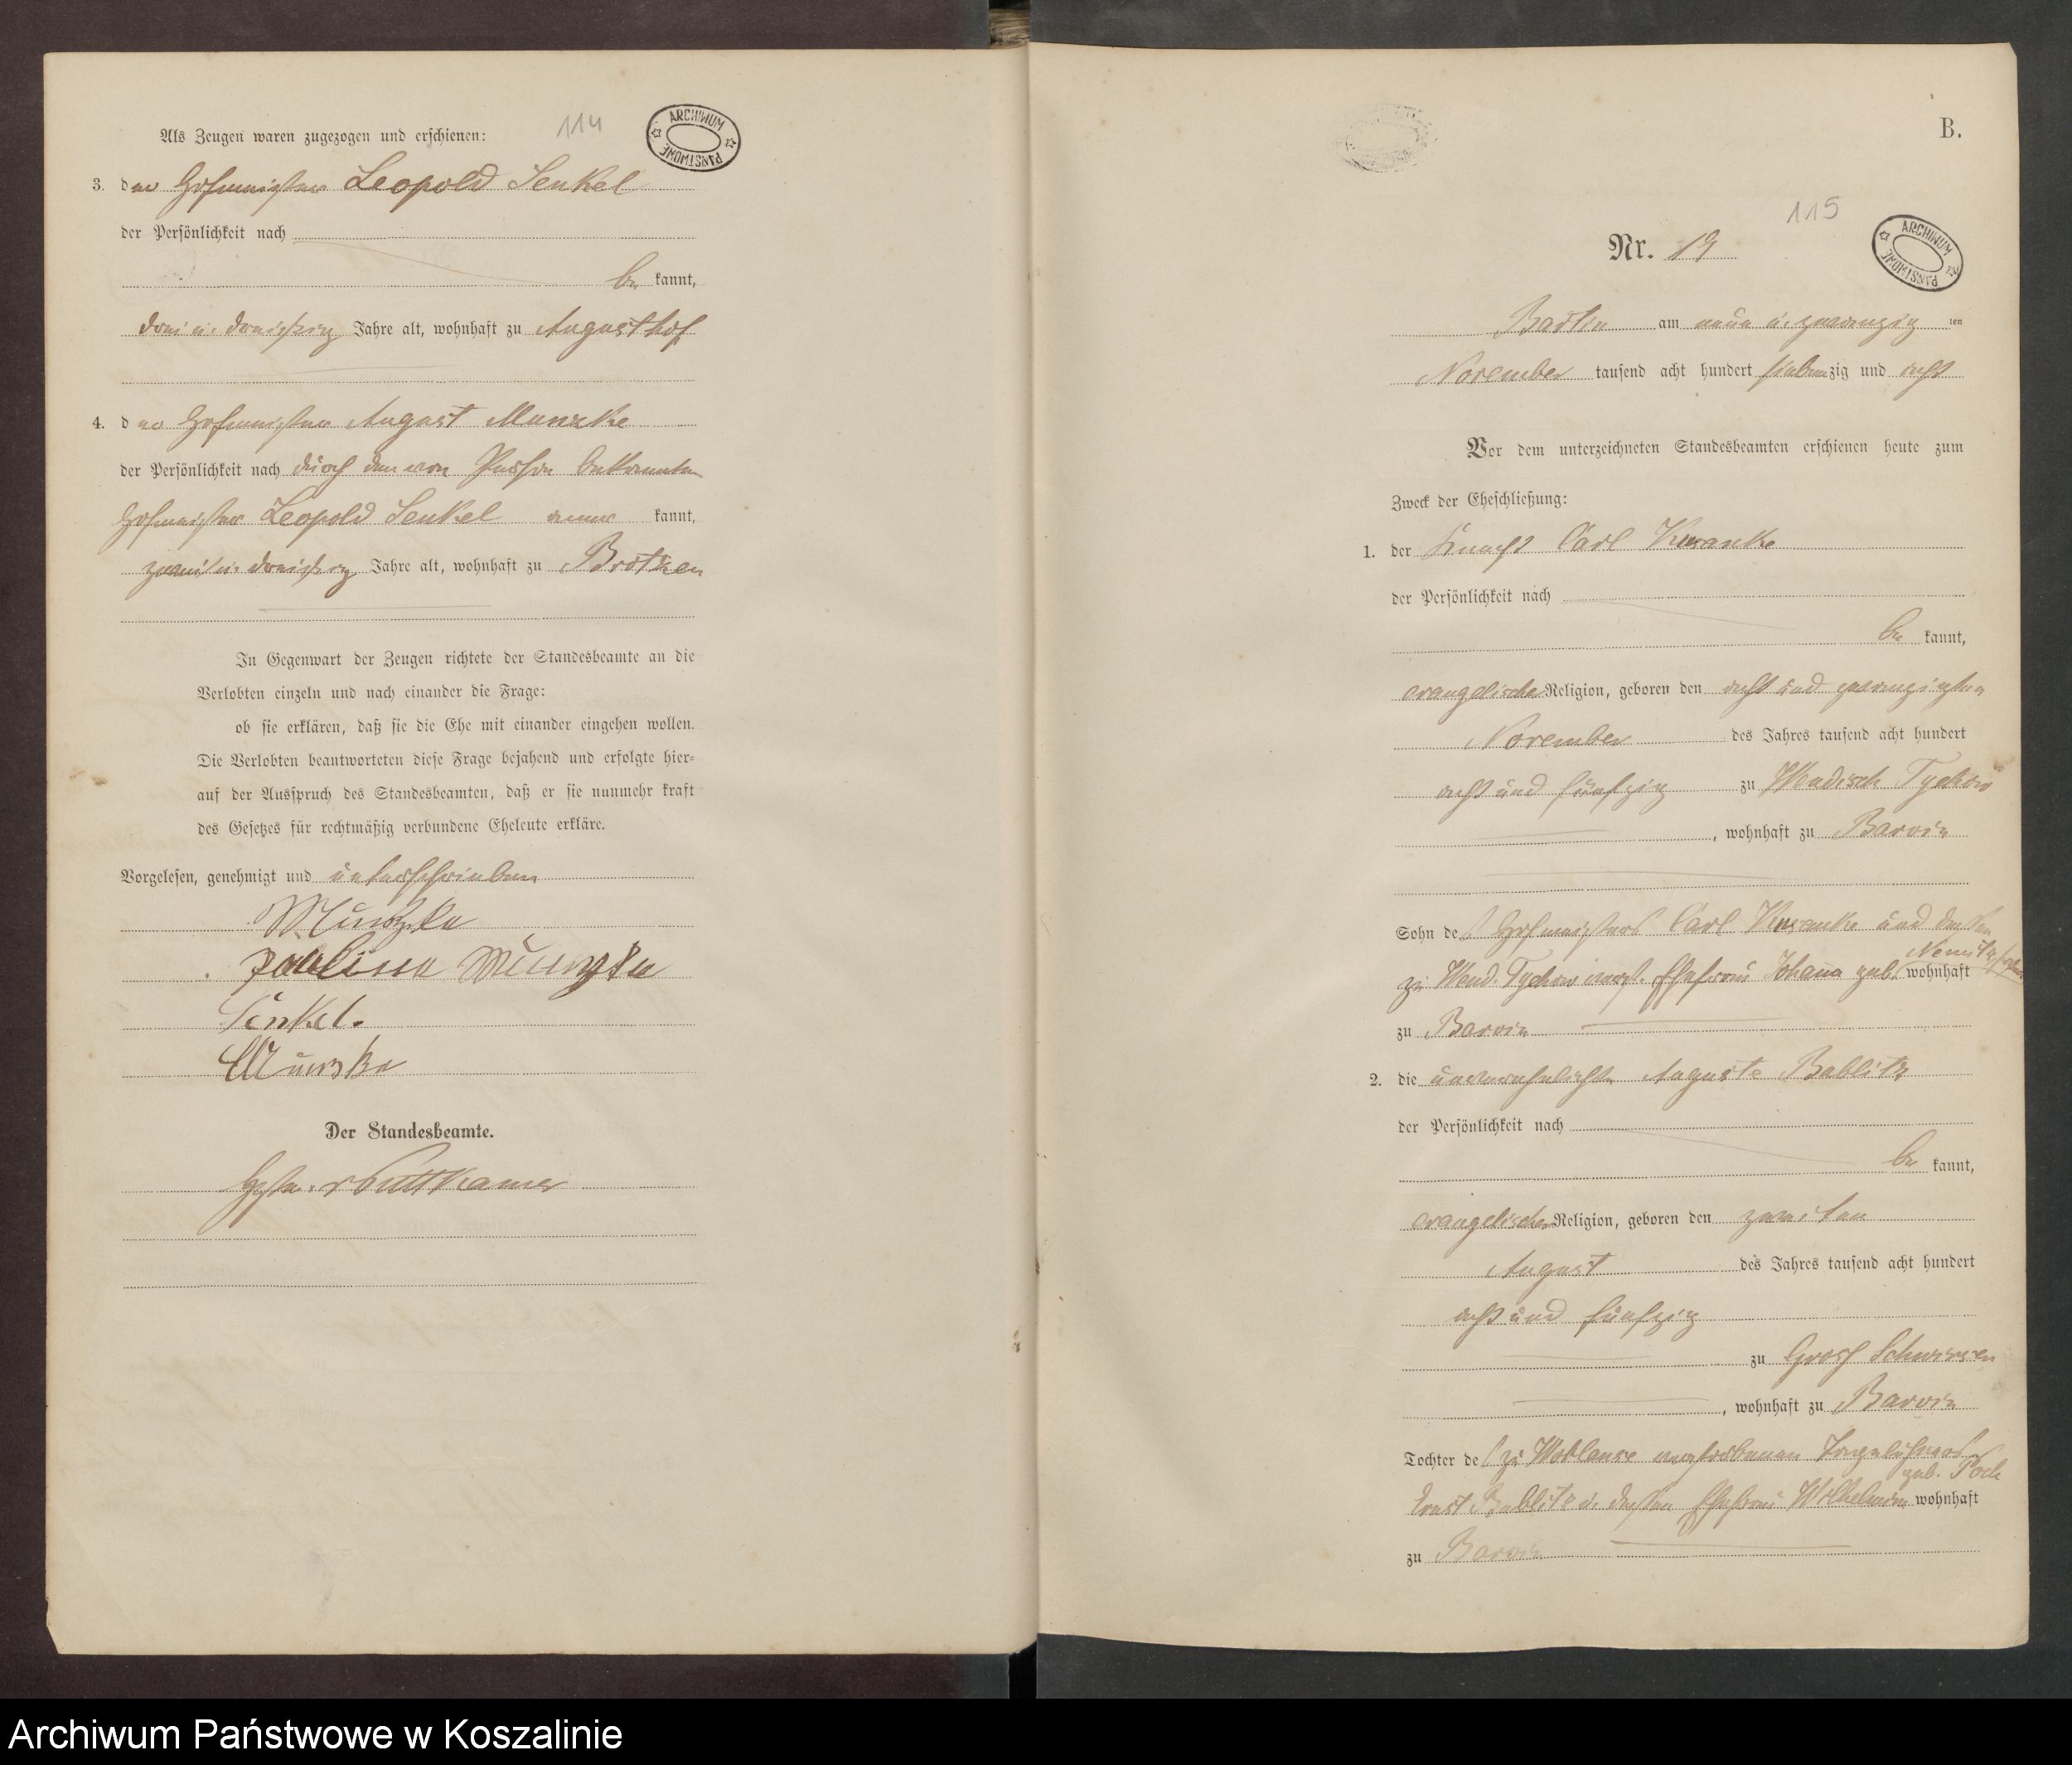 114
ARCHIWUM PAŃSTWOWE
Als Zeugen waren zugezogen und erschienen:
3. der Hofmeister Leopold Senkel
der Persönlichkeit nach
be kannt,
drei u. dreißig Jahre alt, wohnhaft zu Augusthof
4. der Hofmeister August
der Persönlichkeit nach durch den von Person bekannten
Hofmeister Leopold Senkel aner kannt,
zwei u. dreißig Jahre alt, wohnhaft zu Brotzen
In Gegenwart der Zeugen richtete der Standesbeamte an die
Verlobten einzeln und nach einander die Frage:
ob sie erklären, daß sie die Ehe mit einander eingehen wollen.
Die Verlobten beantworteten diese Frage bejahend und erfolgte hier-
auf der Ausspruch des Standesbeamten, daß er sie nunmehr kraft
des Gesetzes für rechtmäßig verbundene Eheleute erkläre.
Vorgelesen, genehmigt und unterschrieben
Senkel.
Der Standesbeamte.
Puttkamer
B.
115
ARCHIWUM PAŃSTWOWE
Nr. 19
Bartin am neun u. zwanzig ten
November tausend acht hundert siebenzig und acht
Vor dem unterzeichneten Standesbeamten erschienen heute zum
Zweck der Eheschließung:
1. der Knecht Carl
der Persönlichkeit nach
be kannt,
evangelischer Religion, geboren den acht und zwanzigsten
November des Jahres tausend acht hundert
acht und fünfzig zu Wendisch Tychow
, wohnhaft zu Barvin
Sohn des Hofmeisters Carl und dessen
Nemitz
zu Wend. Tychow verst. Ehefrau Johana geb. wohnhaft
zu Barvin
2. die unverehelichte Auguste Bablitz
der Persönlichkeit nach
be kannt,
evangelischer Religion, geboren den zweiten
August des Jahres tausend acht hundert
acht und fünfzig
zu Gross Schwirsen
, wohnhaft zu Barvin
Tochter des zu Woblanse verstorbenen Tagelöhners
geb. Pock
Ernst Bablitz u. dessen Ehefrau Wilhelmine wohnhaft
zu Barvin
Archiwum Państwowe w Koszalinie